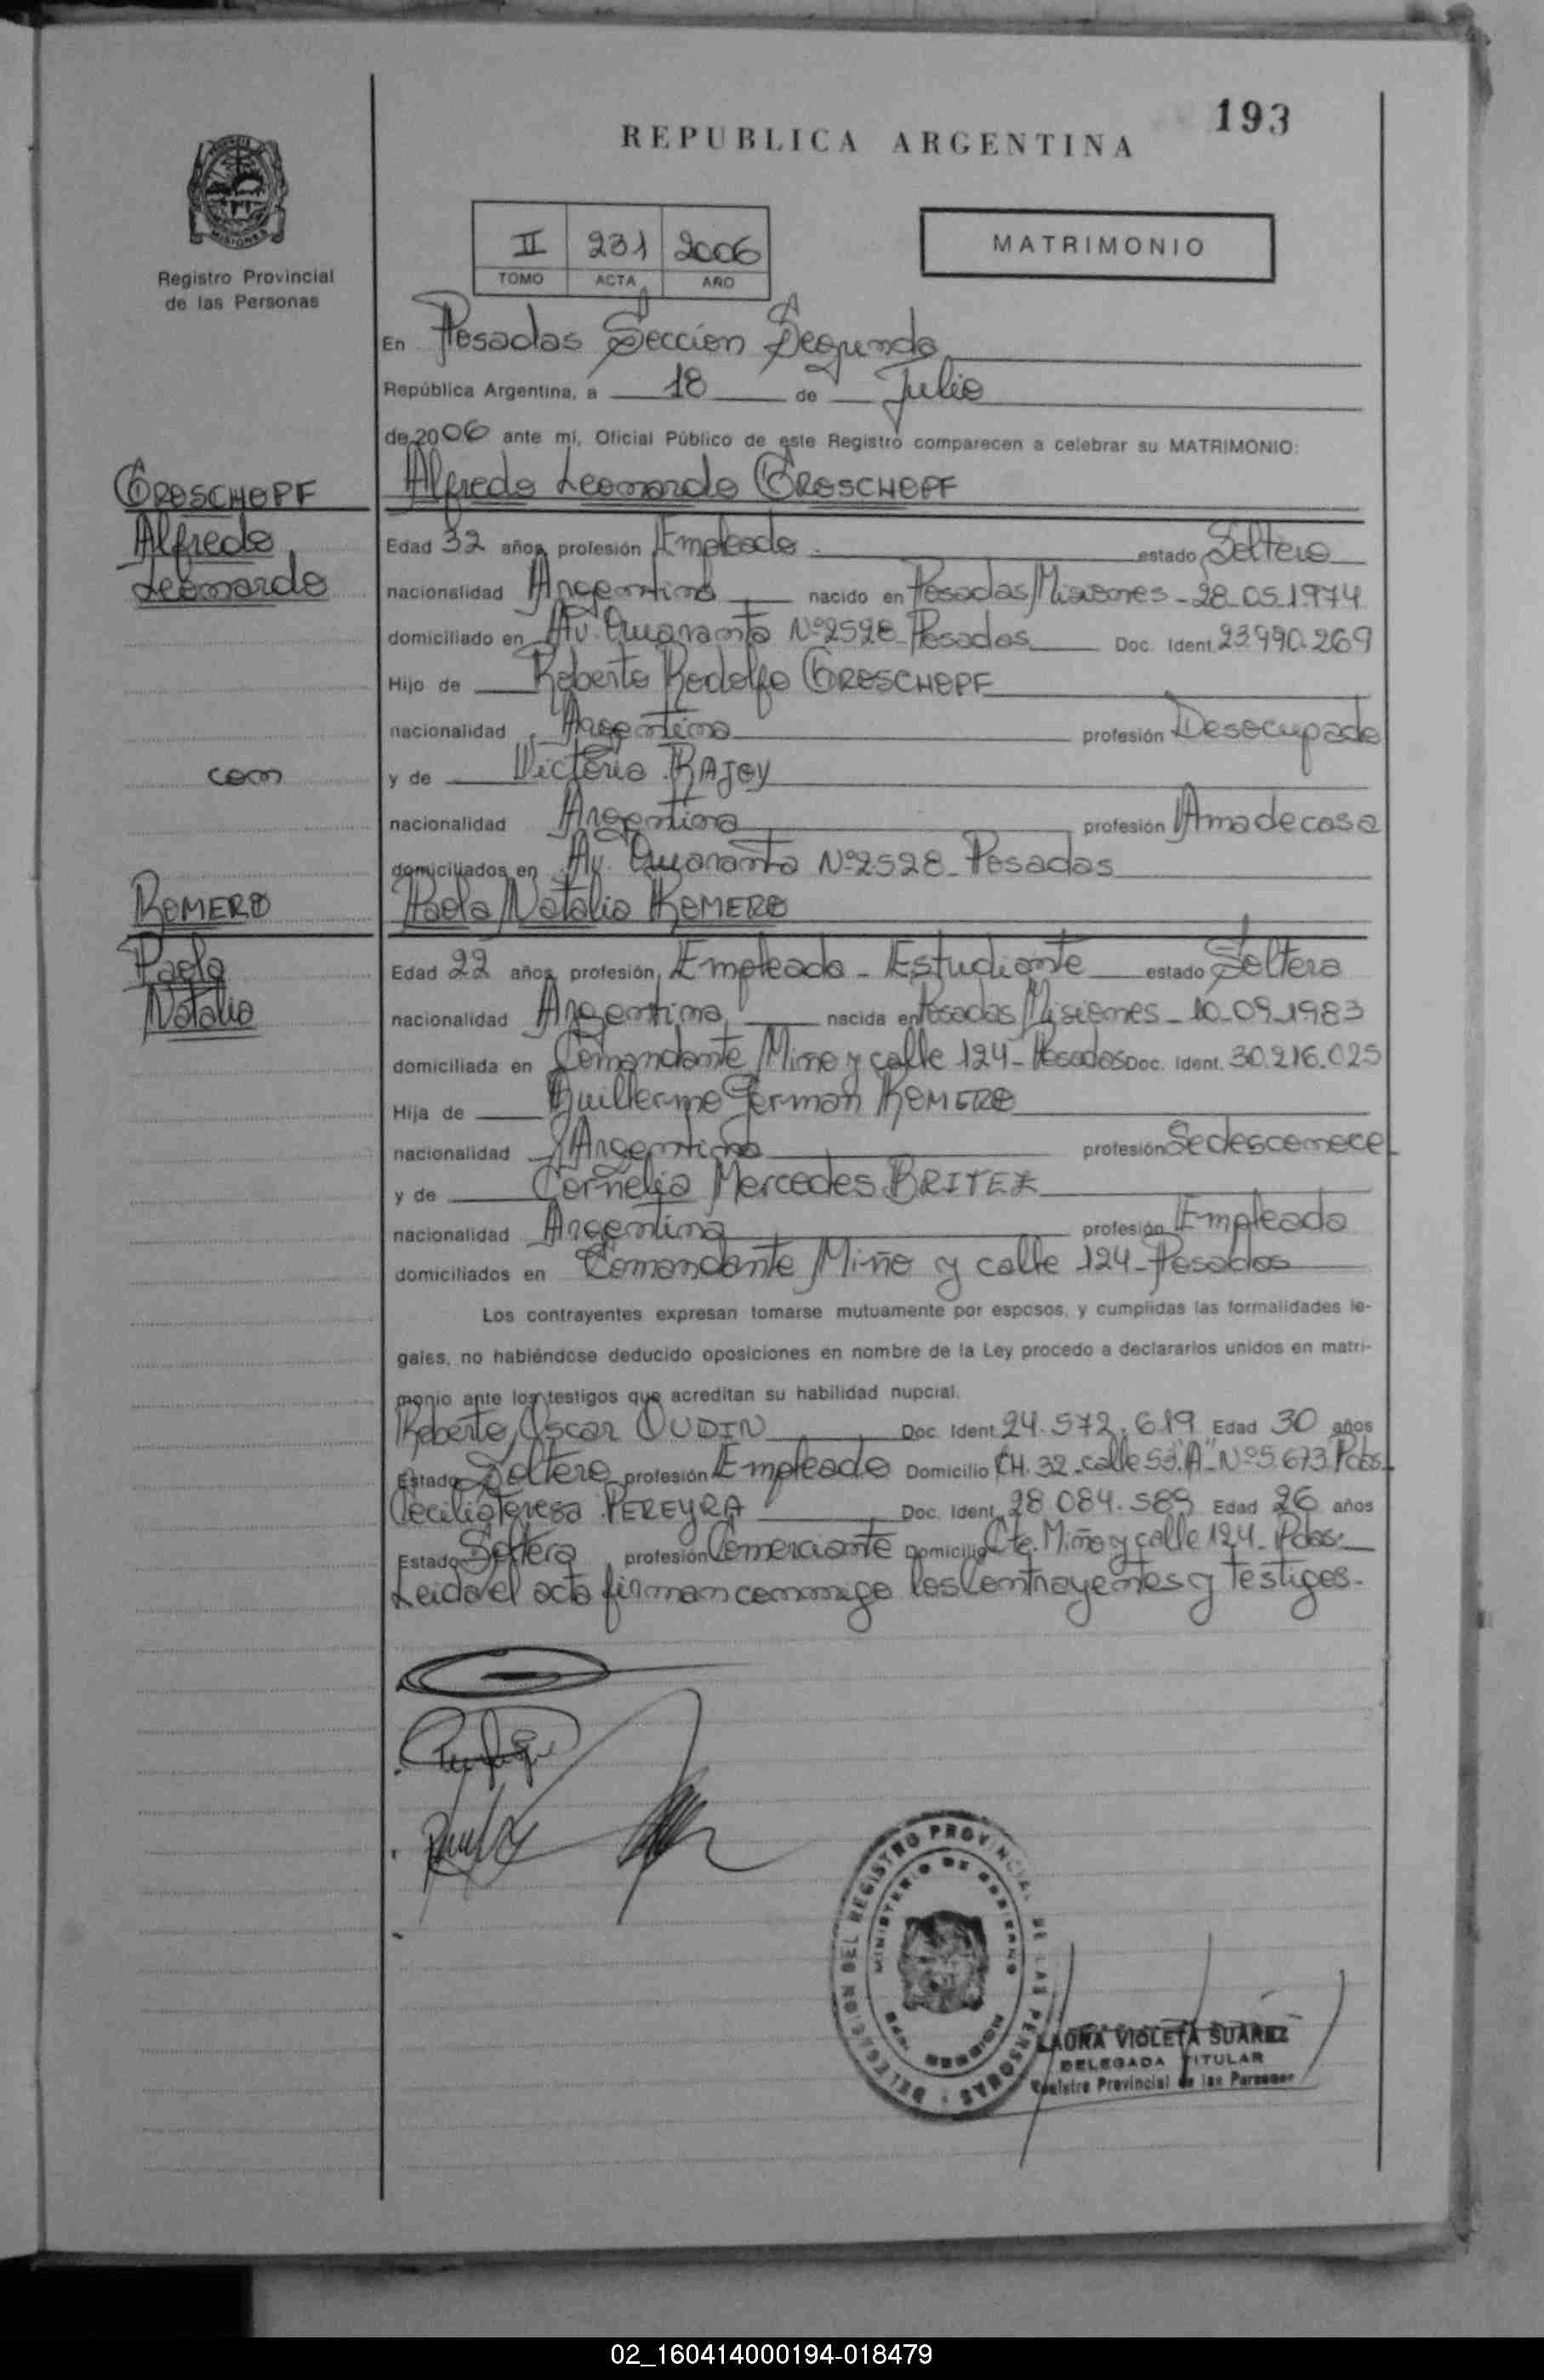 193
REPUBLICA ARGENTINA
MISIONES
Registro Provincial
de las Personas
II 231 2006
TOMO ACTA AÑO
MATRIMONIO
En Posadas Sección Segunda
República Argentina, a 18 de Julio
de 2006 ante mí, Oficial Público de este Registro comparecen a celebrar su MATRIMONIO:
GROSCHOPF
Alfredo
Leonardo
con
ROMERO
Paola
Natalia
Alfredo Leonardo GROSCHOPF
Edad 32 años, profesión Empleado estado Soltero
nacionalidad Argentina nacido en Posadas Misiones - 28-05-1974
domiciliado en Av. Quaranta Nº2528 - Posadas Doc. Ident. 23.990.269
Hijo de Roberto Rodolfo GROSCHOPF
nacionalidad Argentina profesión Desocupado
y de Victoria RAJOY
nacionalidad Argentina profesión Ama de casa
domiciliados en Av. Quaranta Nº2528 - Posadas
Paola Natalia ROMERO
Edad 22 años, profesión, Empleada - Estudiante estado Soltera
nacionalidad Argentina nacida en Posadas Misiones - 10-09-1983
domiciliada en Comandante Miño y calle 124 - Posadas Doc. Ident. 30.216.025
Hija de Guillermo German ROMERO
nacionalidad Argentina profesión Se desconoce
y de Cornelia Mercedes BRITEZ
nacionalidad Argentina profesión Empleada
domiciliados en Comandante Miño y calle 124 - Posadas
Los contrayentes expresan tomarse mutuamente por esposos, y cumplidas las formalidades le-
gales, no habiéndose deducido oposiciones en nombre de la Ley procedo a declararlos unidos en matri-
monio ante los testigos que acreditan su habilidad nupcial.
Roberto Oscar DUDIN Doc. Ident. 24.572.619 Edad 30 años
Estado Soltero profesión Empleado Domicilio CH. 32 - calle 53 "A" - Nº5.673 Pdas
Cecilia Teresa PEREYRA Doc. Ident. 28.084.589 Edad 26 años
Estado Soltera profesión Comerciante Domicilio Cte. Miño y calle 124 - Pdas.
Leida el acta firman conmigo los Contrayentes y testigos.
DELEGACION DEL REGISTRO PROVINCIAL DE LAS PERSONAS
MINISTERIO DE GOBIERNO
MISIONES
LAURA VIOLETA SUAREZ
DELEGADA TITULAR
Registro Provincial de las Personas
02_160414000194-018479